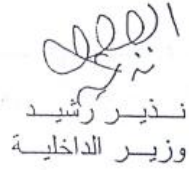 نـذيـر رشيـد
وزيـر الداخليـة